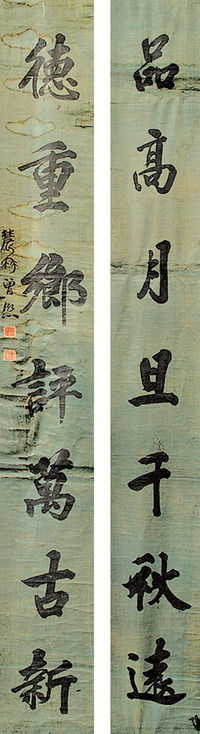 品高月旦千秋遠
德重鄉評萬古新
農髯曾熙